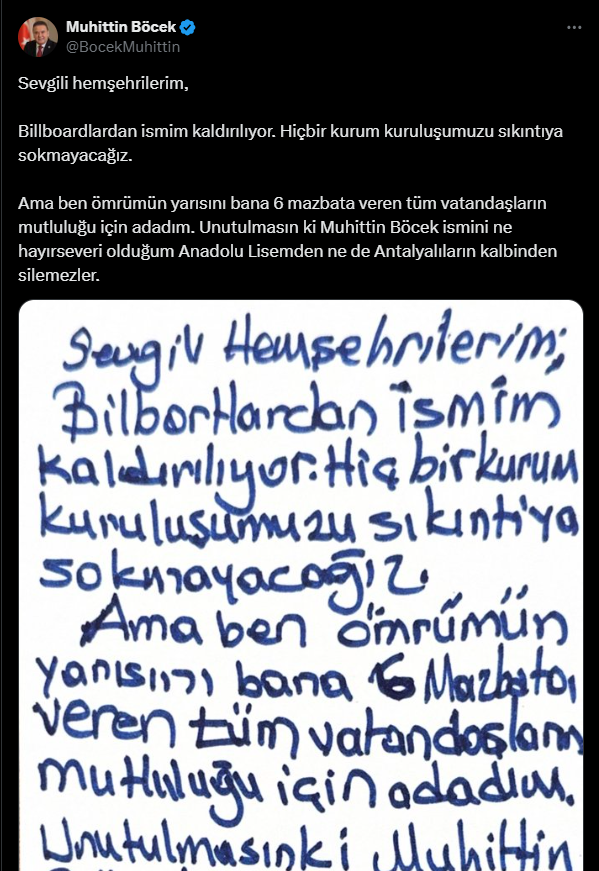 Muhittin Böcek
@BocekMuhittin
Sevgili hemşehrilerim,
Billboardlardan ismim kaldırılıyor. Hiçbir kurum kuruluşumuzu sıkıntıya
sokmayacağız.
Ama ben ömrümün yarısını bana 6 mazbata veren tüm vatandaşların
mutluluğu için adadım. Unutulmasın ki Muhittin Böcek ismini ne
hayırseveri olduğum Anadolu Lisemden ne de Antalyalıların kalbinden
silemezler.
Sevgili Hemşehrilerim;
Bilbortlardan ismim
kaldırılıyor. Hiç bir kurum
kuruluşumuzu sıkıntı'ya
sokmayacağız.
Ama ben ömrümün
yarısını bana 6 Mazbata
veren tüm vatandaşların
mutluluğu için adadım.
Unutulmasınki Muhittin